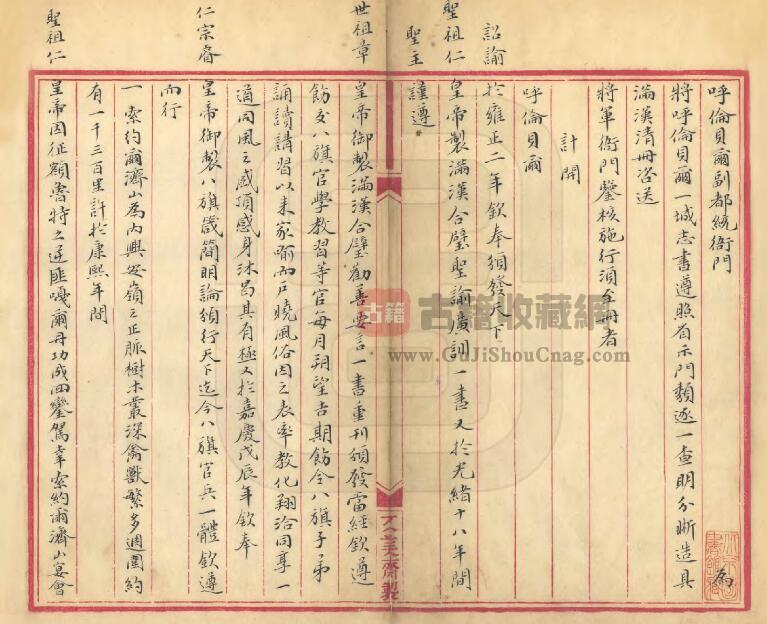 呼倫貝爾副都統衙門 為
將呼倫貝爾一城志書遵照省示門類逐一查明分晰造具
滿漢清冊咨送
將軍衙門鑒核施行須至冊者
計開
呼倫貝爾
詔諭於雍正二年欽奉頒發天下
聖祖仁皇帝製滿漢合璧聖諭廣訓一書又於光緒十八年間
聖主謹遵
世祖章皇帝御製滿漢合璧勸善要言一書重刊頒發當經欽遵
飭交八旗官學教習等官每月朔望吉期飭令八旗子弟
誦讀講習以来家喻而戶曉風俗因之表率教化翔洽同享一
道同風之盛頂感身沐曷其有極又於嘉慶戊辰年欽奉
仁宗睿皇帝御製八旗箴簡明諭頒行天下迄今八旗官兵一體欽遵
而行
一索約爾濟山為內興安嶺之正脈樹木叢深禽獸繁多週圍約
有一千三百里許於康熙年間
聖祖仁皇帝因征額魯特之逆匪噶爾丹功成回鑾駕幸索約爾濟山宴會
古籍 古籍收藏網
www.GuJiShouCang.com